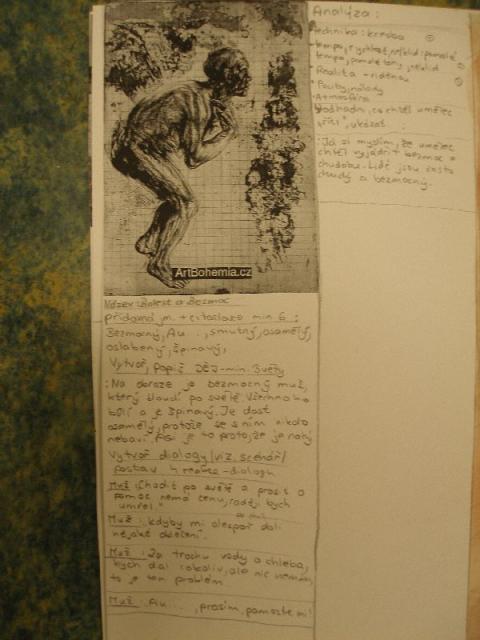 ArtBohemia.cz
Název: Bolest a Bezmoc
přídavná jm. + citoslovce min. 6 :
Bezmocný, Au..., smutný, osamělý,
oslabený, špinavý,
Vytvoř, popiš DĚJ - min. 3 věty
: Na obraze je bezmocný muž,
který bloudí po světě. Všechno ho
bolí a je špinavý. Je dost
osamělý, protože se s ním nikdo
nebaví. Asi je to proto, že je nahý
Vytvoř dialogy/viz. scénář/
postav 4 - dialogů
Muž: "Chodit po světě a prosit o
pomoc nemá cenu, raději bych
umřel"
Muž: kdyby mi alespoň dali
nějaké oblečení.
Muž: Za trochu vody a chleba,
bych dal cokoliv, ale nic nemám,
to je ten problém.
Muž: Au..., prosím, pomozte mi!
Analýza:
technika: kresba
tempo, rychlost,
tempo, pomalé tóny,
Realita
Pocity, nálady
Atmosféra
Odhadni, co chtěl umělec
"říci", ukázat
: Já si myslím, že umělec
chtěl vyjádřit bezmoc a
chudobu. Lidé jsou často
chudý a bezmocný.